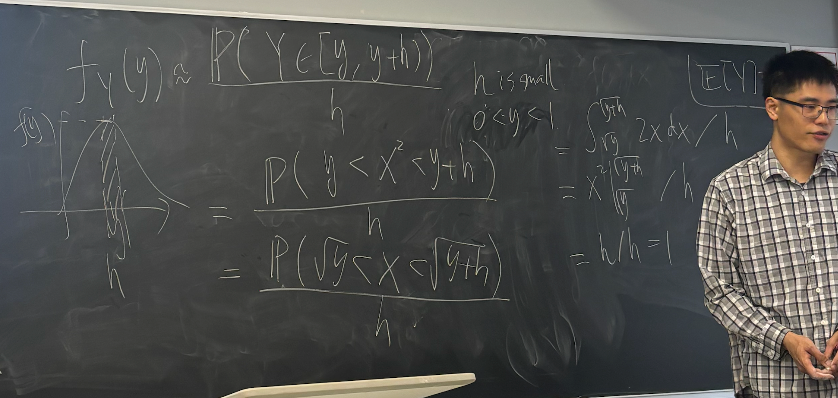 f_Y(y) ≈ P(Y∈[y, y+h)) / h
h is small
0<y<1
f(y)
h
= P(y < x² < y+h) / h
= P(√y < x < √(y+h)) / h
= ∫_{√y}^{√(y+h)} 2x dx / h
= x² |_{√y}^{√(y+h)} / h
= h/h = 1
E[Y] =